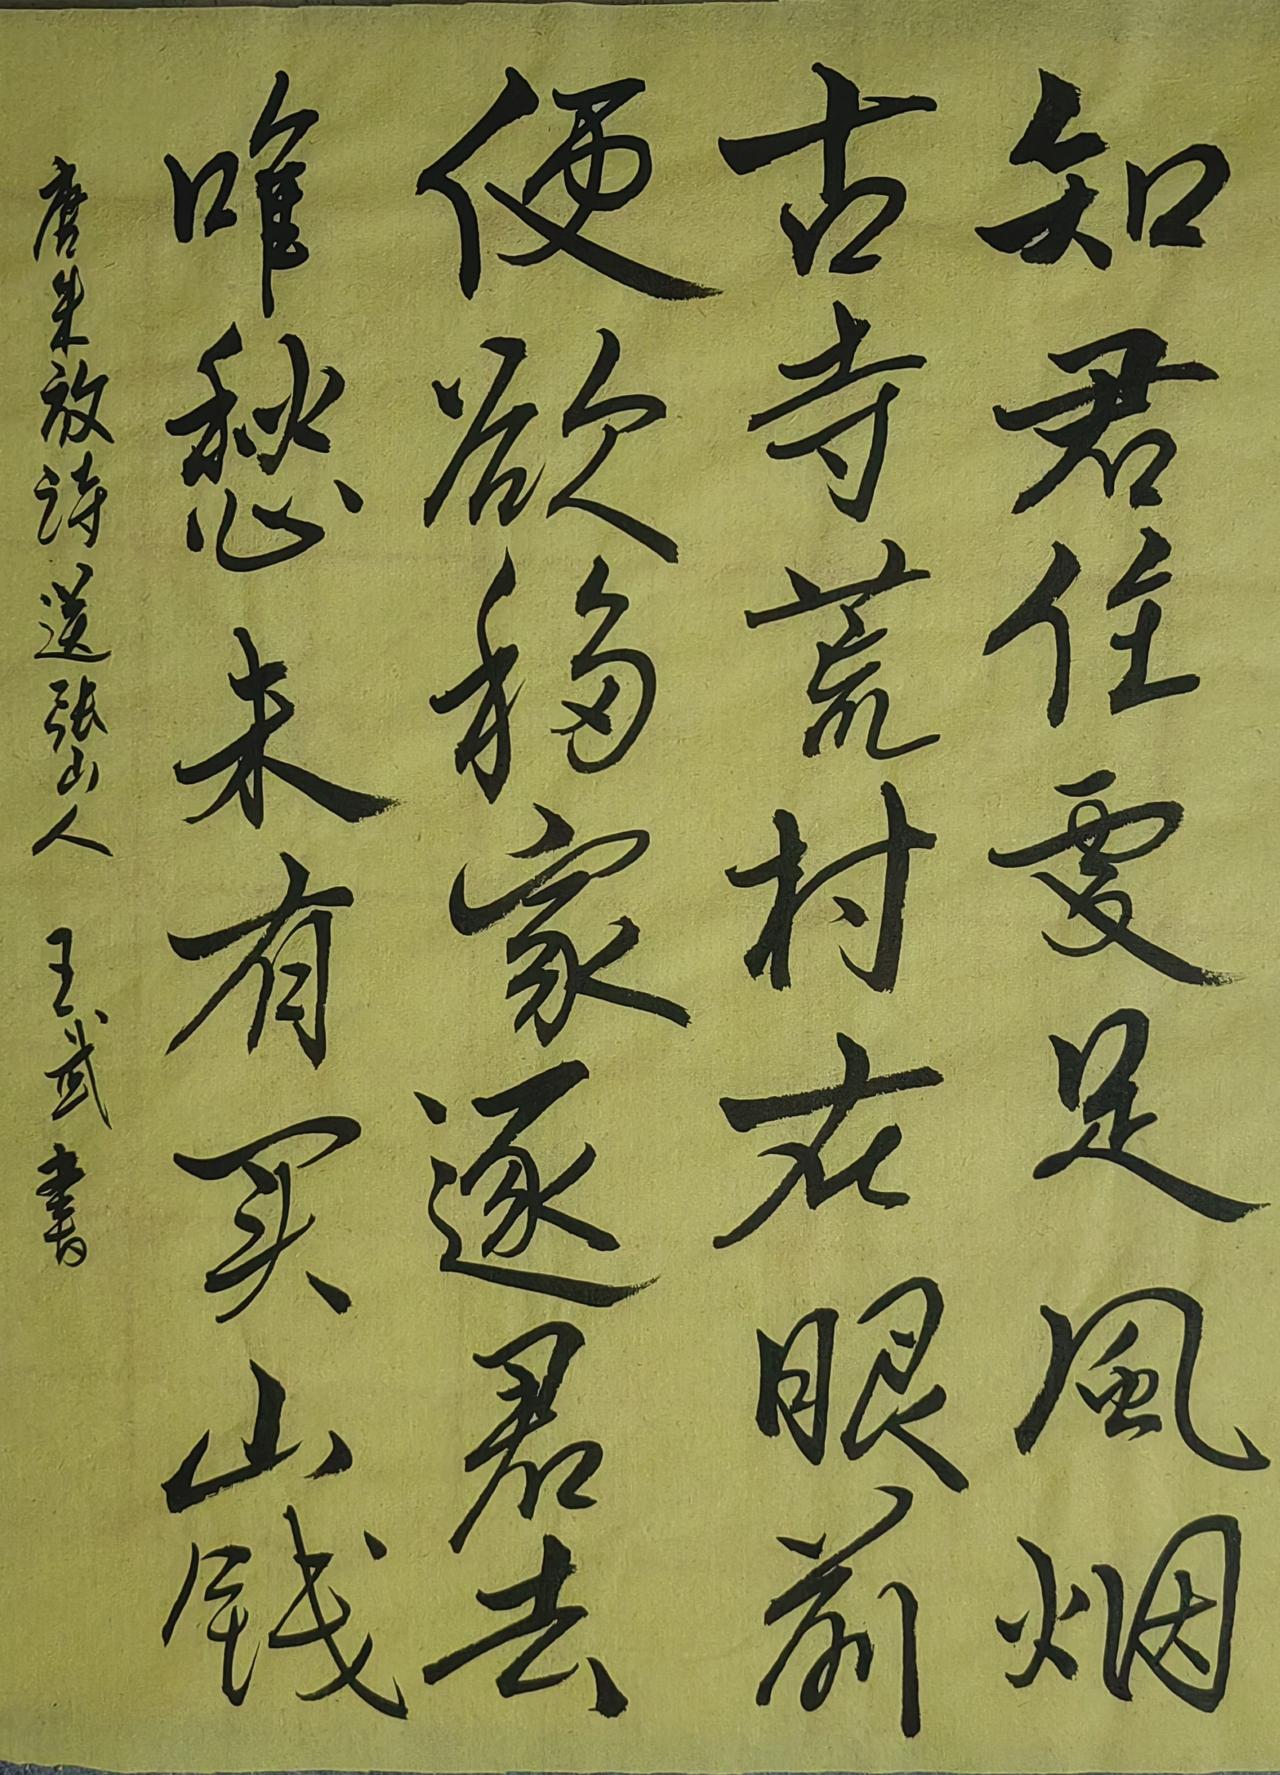 知君住处足風烟
古寺荒村在眼前
便欲移家逐君去
唯愁未有买山钱
唐朱放诗送张山人 王武書